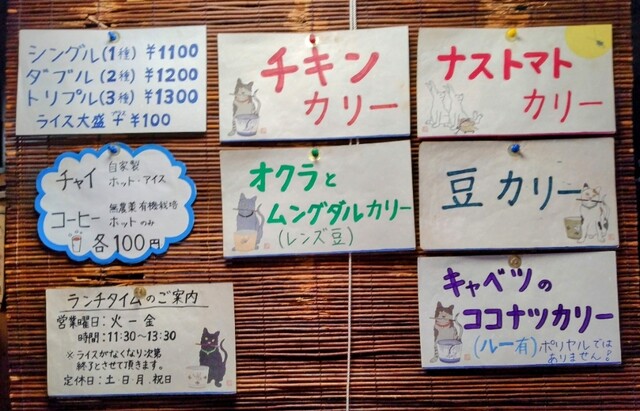 シングル(1種) ¥1100
ダブル(2種) ¥1200
トリプル(3種) ¥1300
ライス大盛 +¥100
チキン
カリー
ナストマト
カリー
チャイ 自家製
ホット・アイス
コーヒー 無農薬有機栽培
ホットのみ
各100円
オクラと
ムングダルカリー
(レンズ豆)
豆カリー
ランチタイムのご案内
営業曜日:火ー金
時間:11:30~13:30
※ライスがなくなり次第
終了とさせて頂きます。
定休日:土日月.祝日
キャベツの
ココナツカリー
(ルー有) ポリヤルでは
ありません!